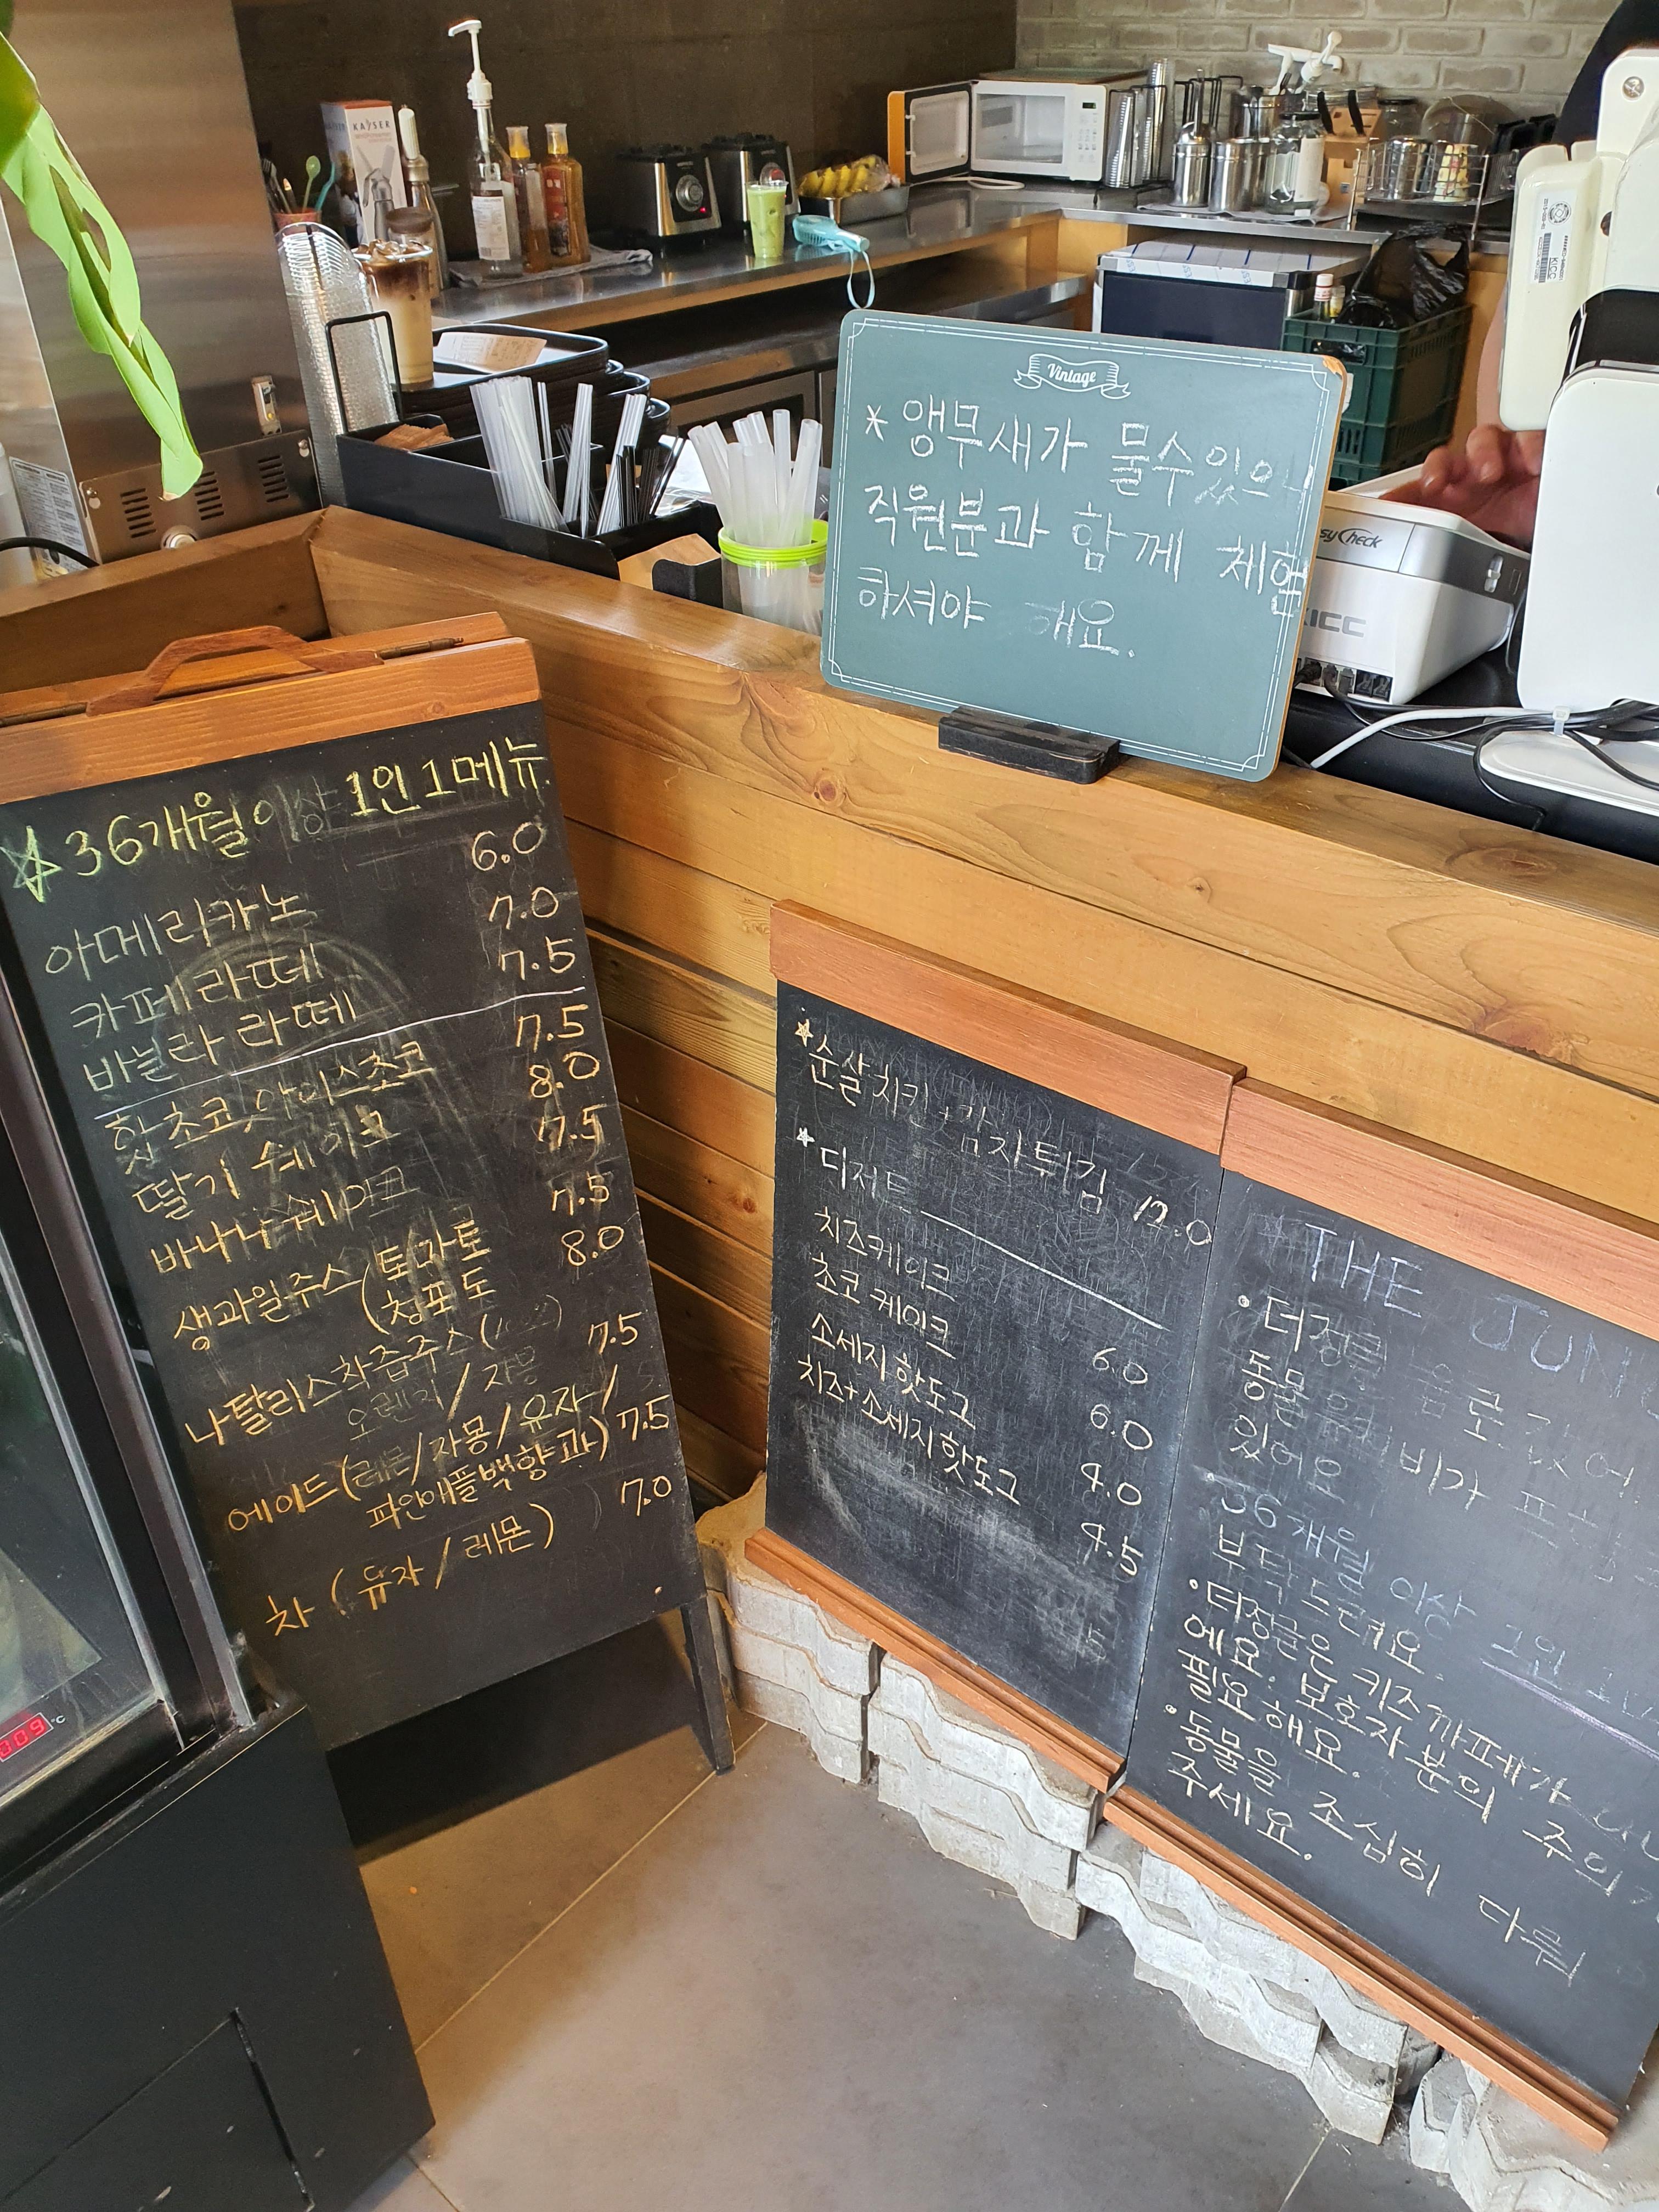 KAYSER
Vintage
* 앵무새가 물수있으니
직원분과 함께 체험
하셔야 해요.
syCheck
KICC
☆36개월이상 1인1메뉴.
아메리카노 6.0
카페라떼 7.0
바닐라 라떼 7.5
핫초코, 아이스초코 7.5
딸기 쉐이크 8.0
바나나쉐이크 7.5
생과일주스 (토마토 7.5
청포도 8.0
나탈리스착즙주스( )
오렌지/자몽 7.5
에이드(레몬/자몽/유자/
파인애플백향과) 7.5
차 (유자/레몬) 7.0
☆순살치킨+감자튀김 12.0
☆디저트
치즈케이크 6.0
초코케이크 6.0
소세지핫도그 4.0
치즈+소세지핫도그 4.5
THE JUNG
•더정글 음료 값에
동물 비가
있어요
36개월 이상 1인 1
부탁드려요.
•더정글은 키즈까페가
에요. 보호자분의 주의가
필요해요.
•동물을 조심히 다뤄
주세요.
009 °C